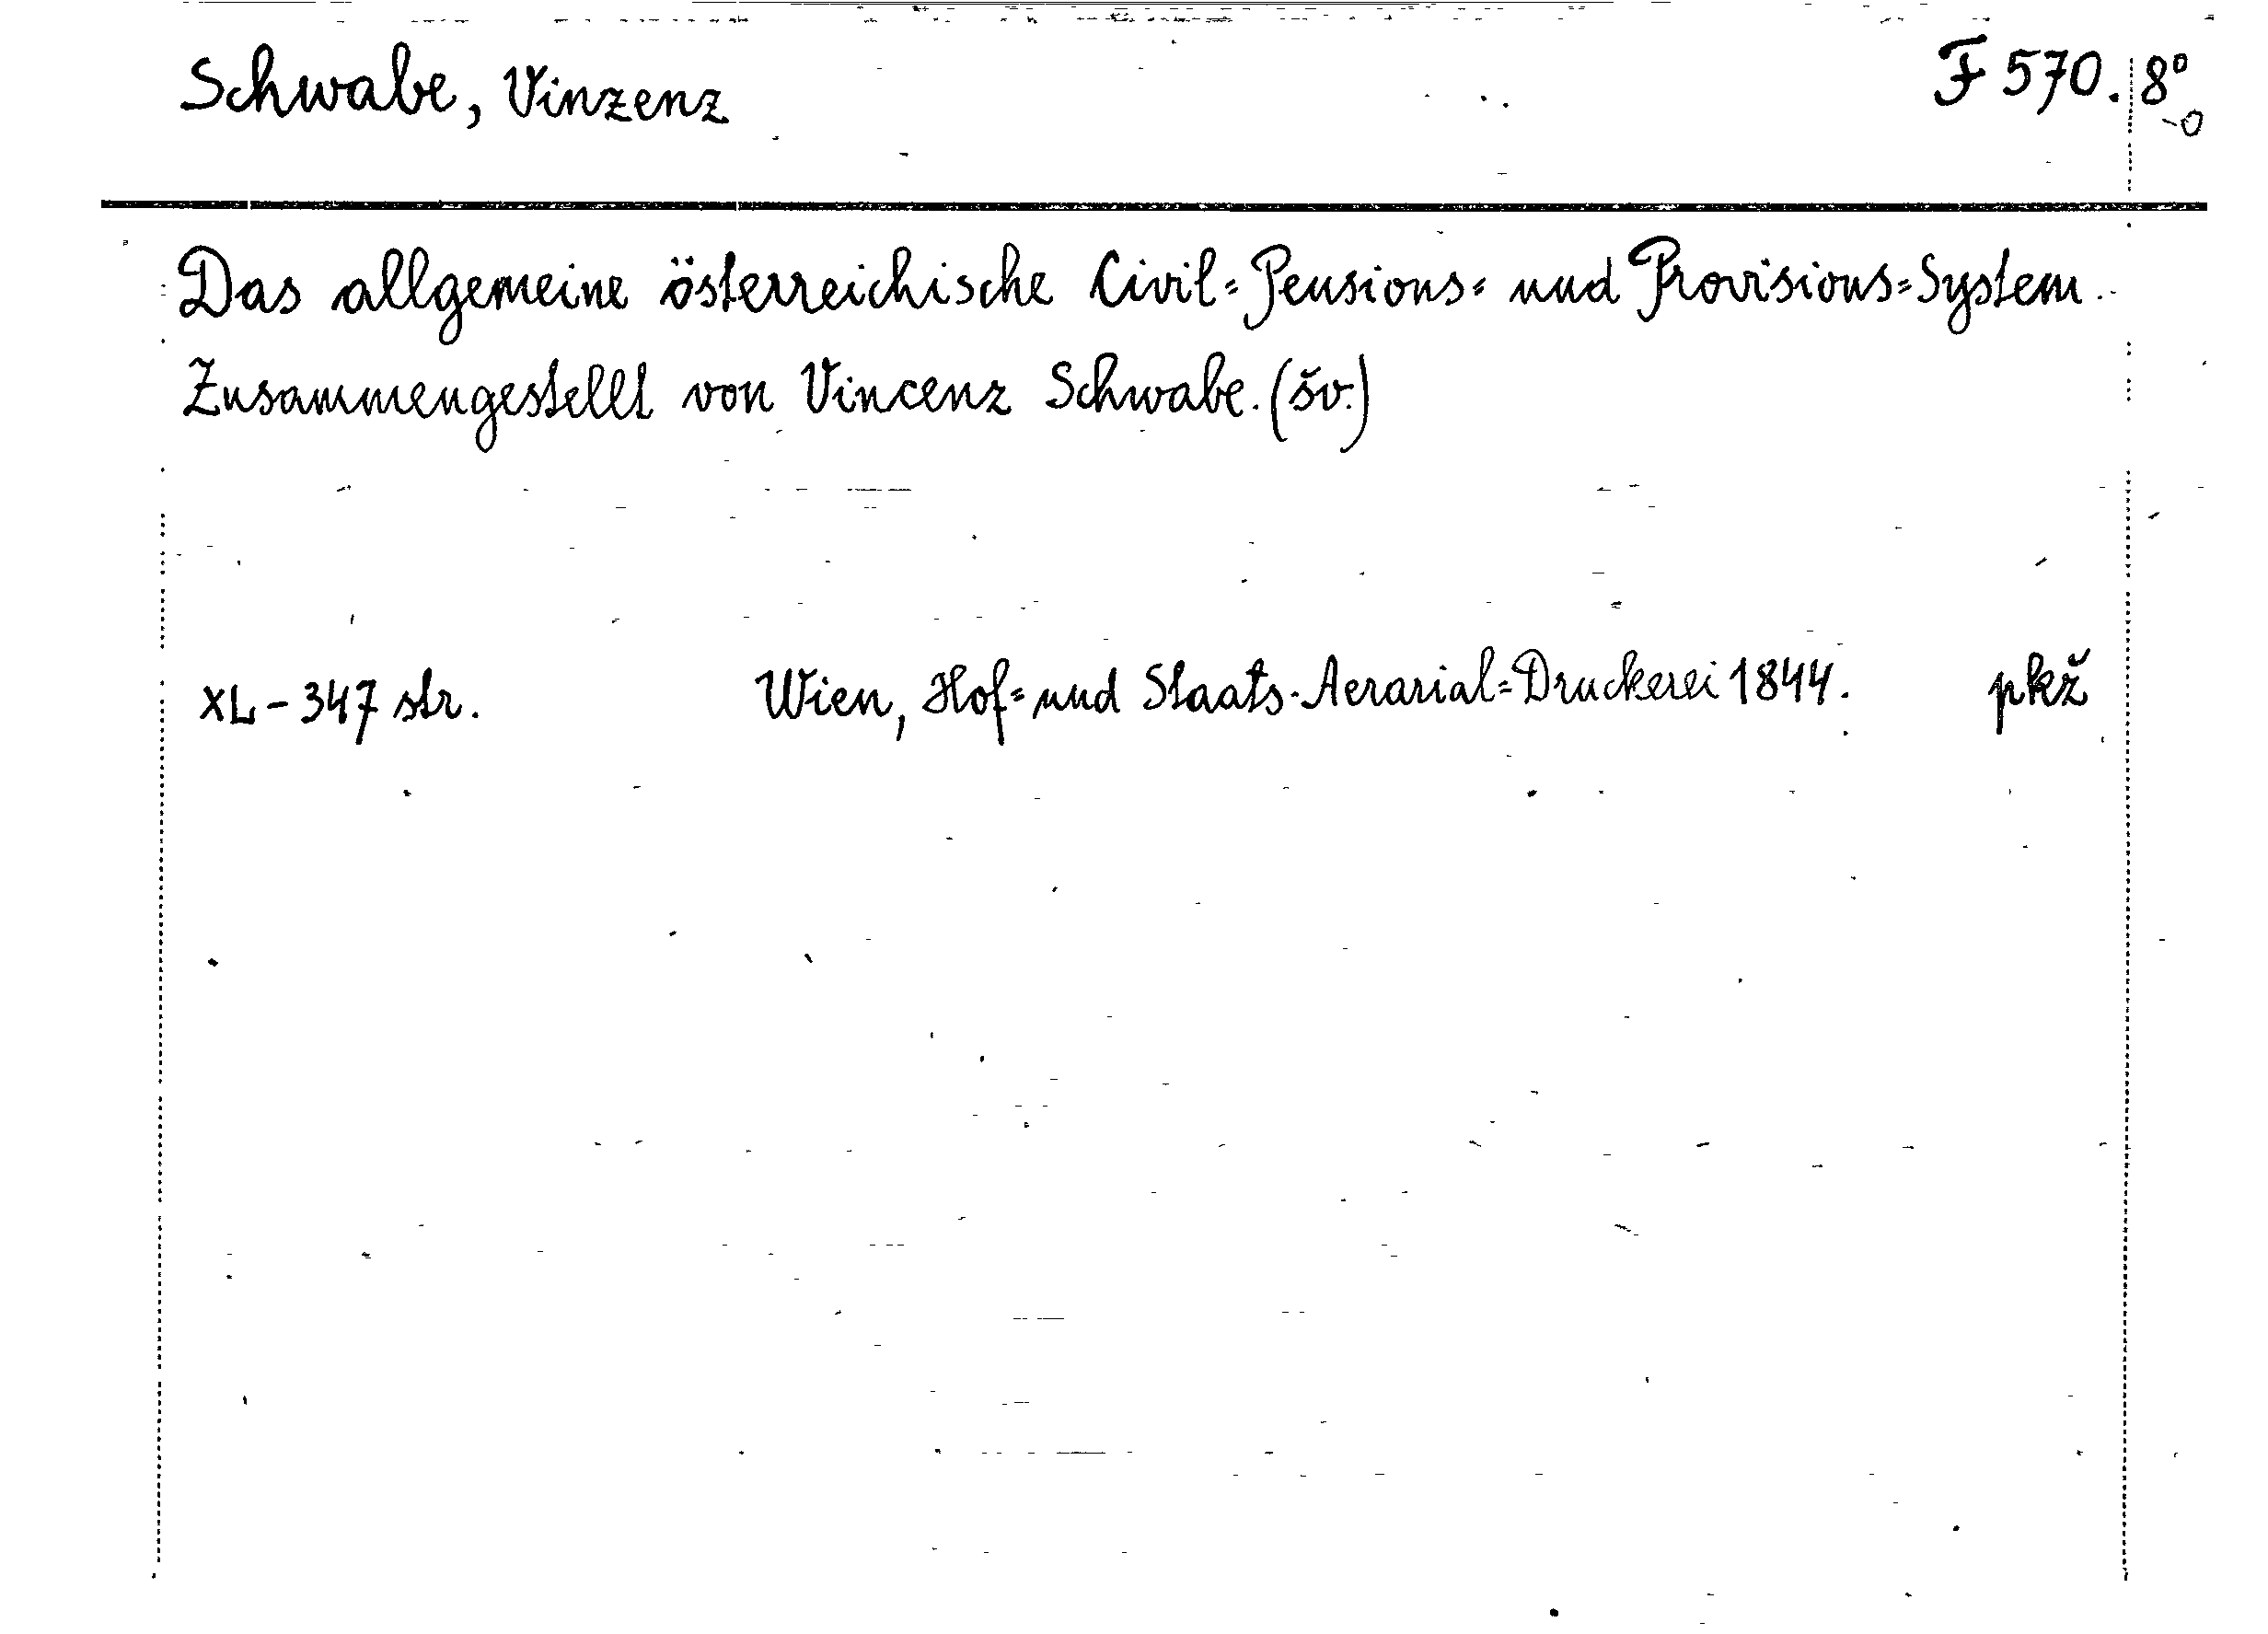 Schwabe, Vinzenz F 570. 8° -0
Das allgemeine österreichische Civil=Pensions= und Provisions=System.
Zusammengestellt von Vincenz Schwabe. (šv.)
XL - 347 str. Wien, Hof= und Staats-Aerarial=Druckerei 1844. pkž